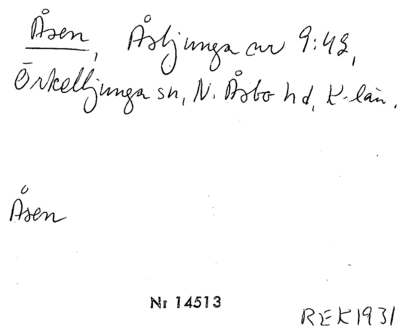 Åsen, Åsljunga av 9:42,
Örkelljunga sn, N. Åsbo hd, K-län.
Åsen
Nr 14513
REK1931